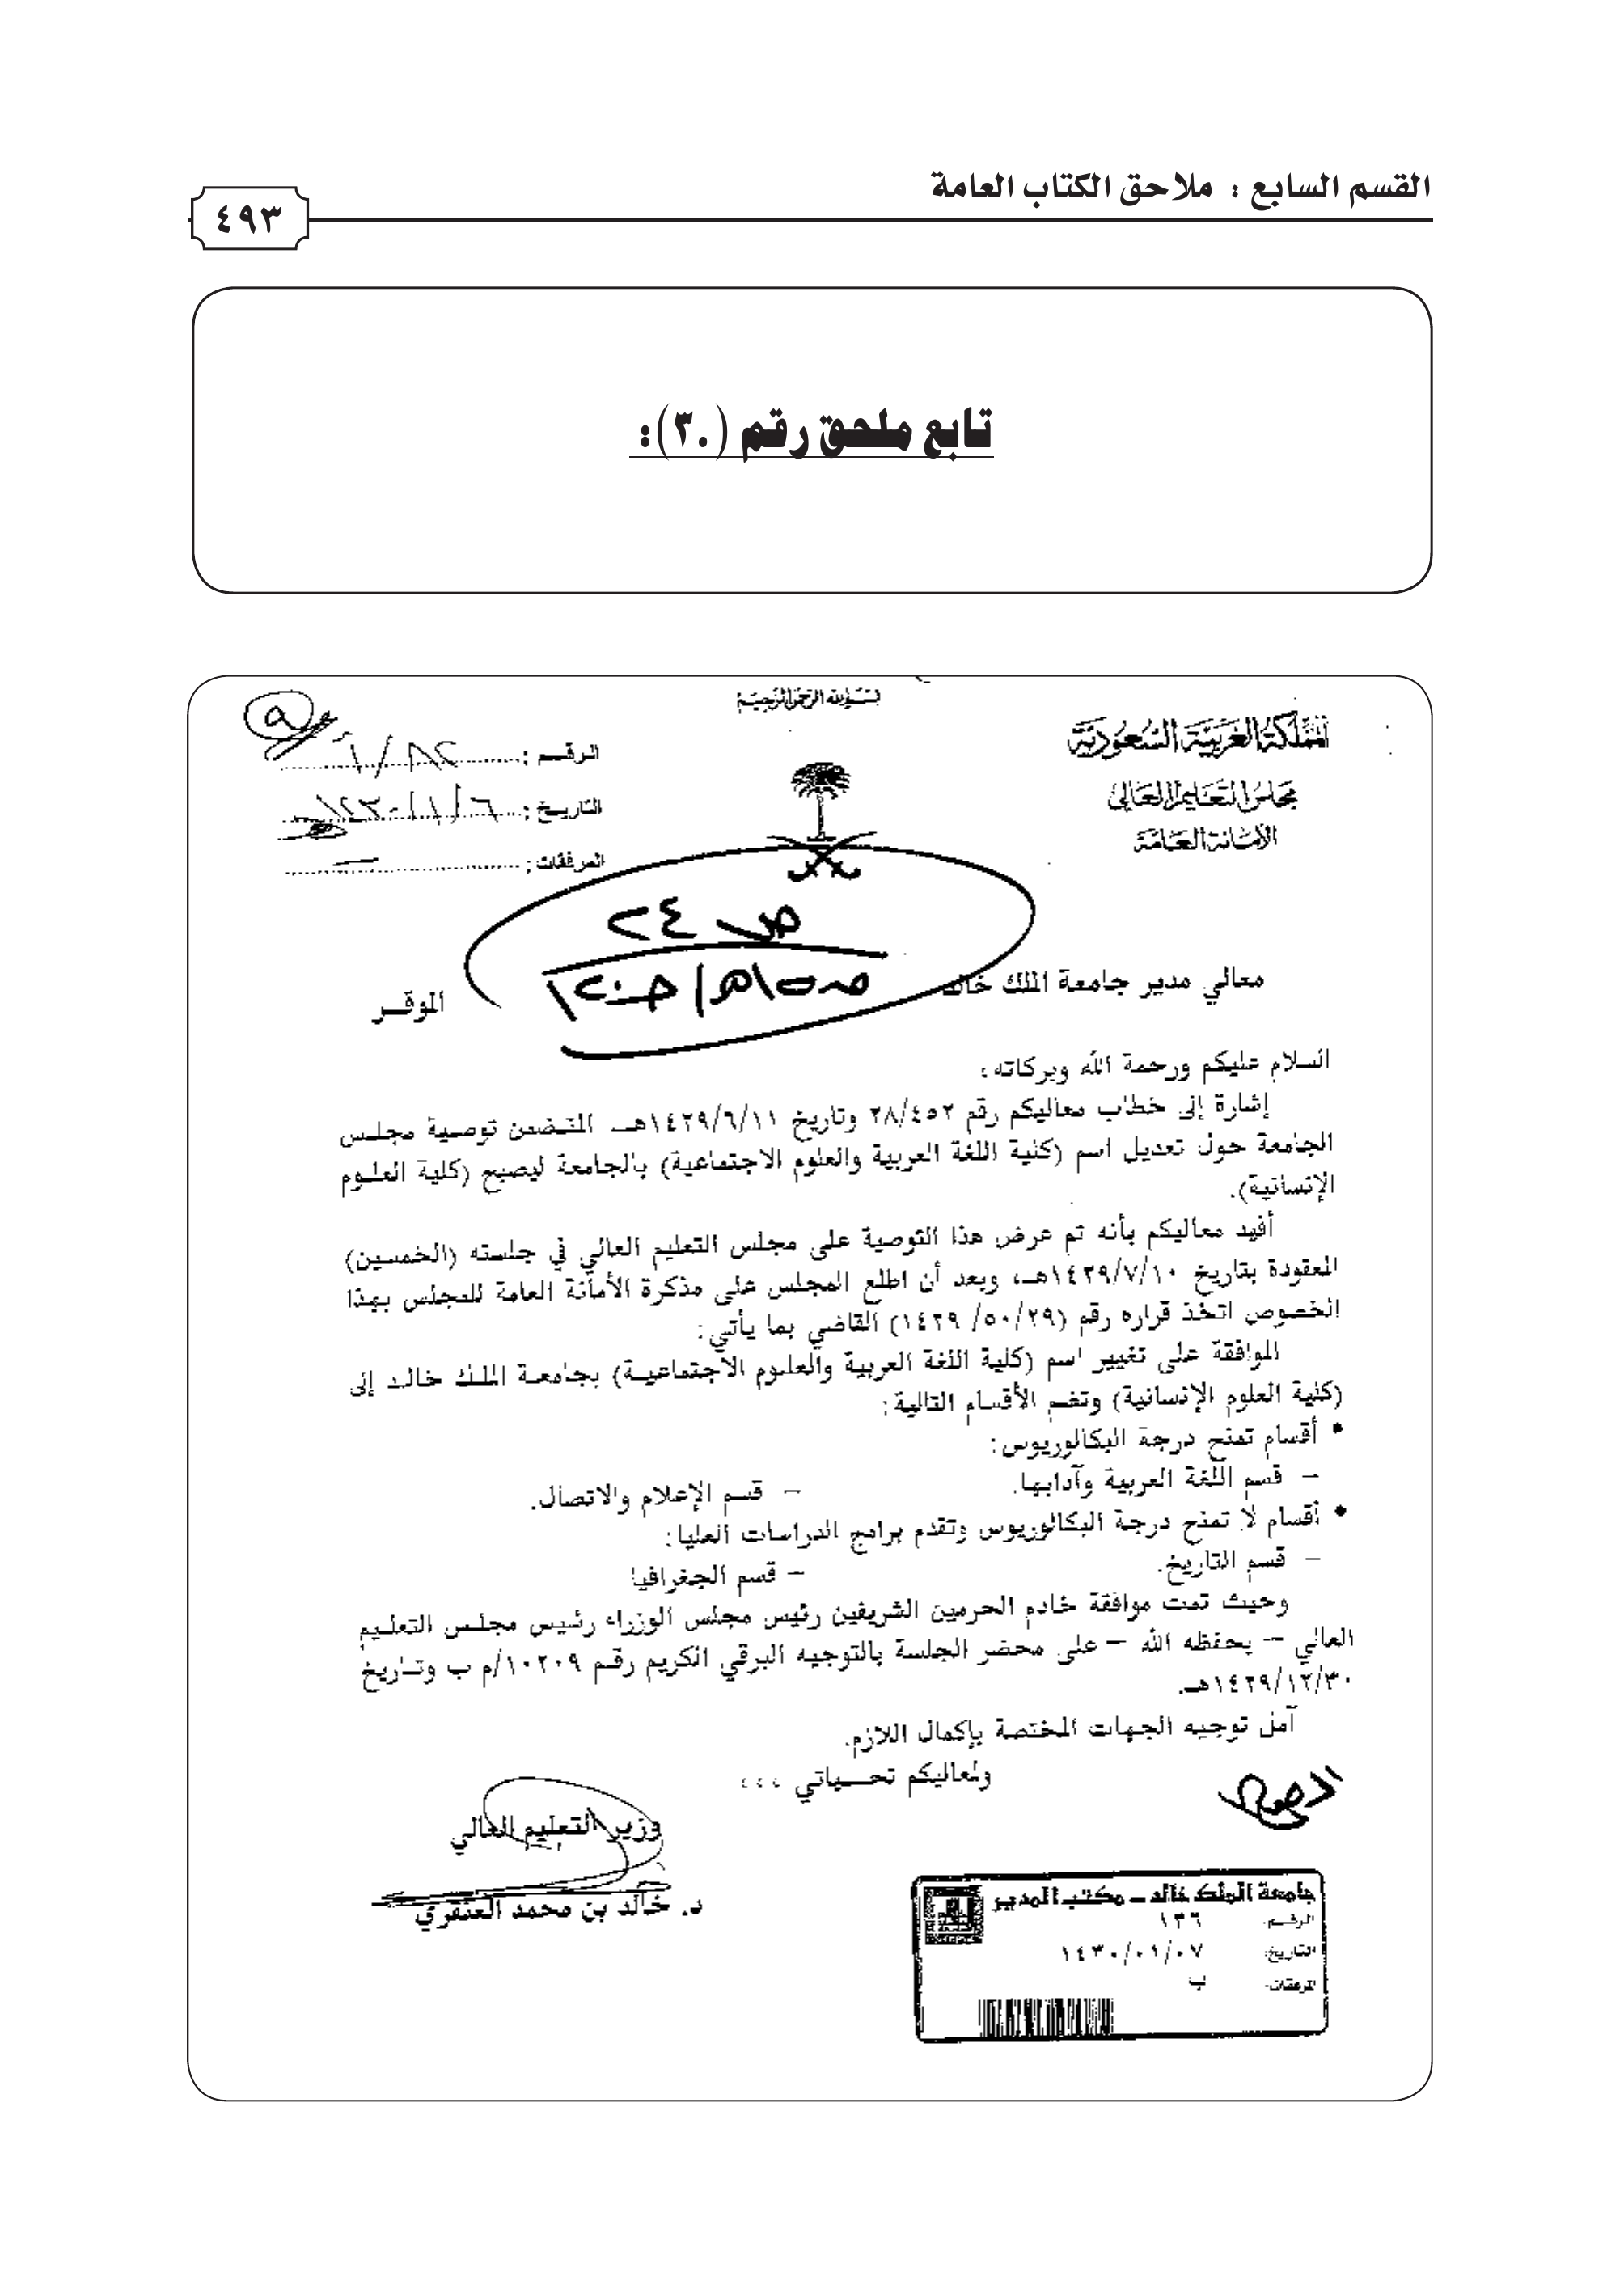 القسم السابع : ملاحق الكتاب العامة
٤٩٣
تابع ملحق رقم (٣٠):
بسم الله الرحمن الرحيم
المملكة العربية السعودية
مجلس التعليم العالي
الأمانة العامة
الرقـــم :
التاريـخ : ١٤٣٠/١/٦
المرفقات :
ص ٢٤
معالي مدير جامعة الملك خالد الموقـر
السلام عليكم ورحمة الله وبركاته ،
إشارة إلى خطاب معاليكم رقم ٢٨/٤٥٢ وتاريخ ١٤٢٩/٦/١١هـــ المتـضمن توصـية مجلـس
الجامعة حول تعديل اسم (كلية اللغة العربية والعلوم الاجتماعية) بالجامعة ليصبح (كلية العلـوم
الإنسانية).
أفيد معاليكم بأنه تم عرض هذا التوصية على مجلس التعليم العالي في جلسته (الخمسين)
المعقودة بتاريخ ١٤٢٩/٧/١٠هــ، وبعد أن اطلع المجلس على مذكرة الأمانة العامة للمجلس بهذا
الخصوص اتخذ قراره رقم (١٤٢٩ /٥٠/٢٩) القاضي بما يأتي:
الموافقة على تغيير اسم (كلية اللغة العربية والعلـوم الاجتماعيـة) بجامعـة الملـك خالـد إلى
(كلية العلوم الإنسانية) وتضم الأقسام التالية:
• أقسام تمنح درجة البكالوريوس:
– قسم اللغة العربية وآدابها. – قسم الإعلام والاتصال.
• أقسام لا تمنح درجة البكالوريوس وتقدم برامج الدراسات العليا:
– قسم التاريخ. – قسم الجغرافيا
وحيث تمت موافقة خادم الحرمين الشريفين رئيس مجلس الوزراء رئـيس مجلـس التعلـيم
العالي – يحفظه الله – على محضر الجلسة بالتوجيه البرقي الكريم رقـم ١٠٢٠٩/م ب وتـاريخ
١٤٢٩/١٢/٣٠هــ.
آمل توجيه الجهات المختصة بإكمال اللازم.
ولمعاليكم تحــــياتي ،،،
وزير التعليم العالي
د. خالد بن محمد العنقري
جامعة الملك خالد – مكتب المدير
الرقم: ١٣٦
التاريخ: ١٤٣٠/٠١/٠٧
المرفقات: ب